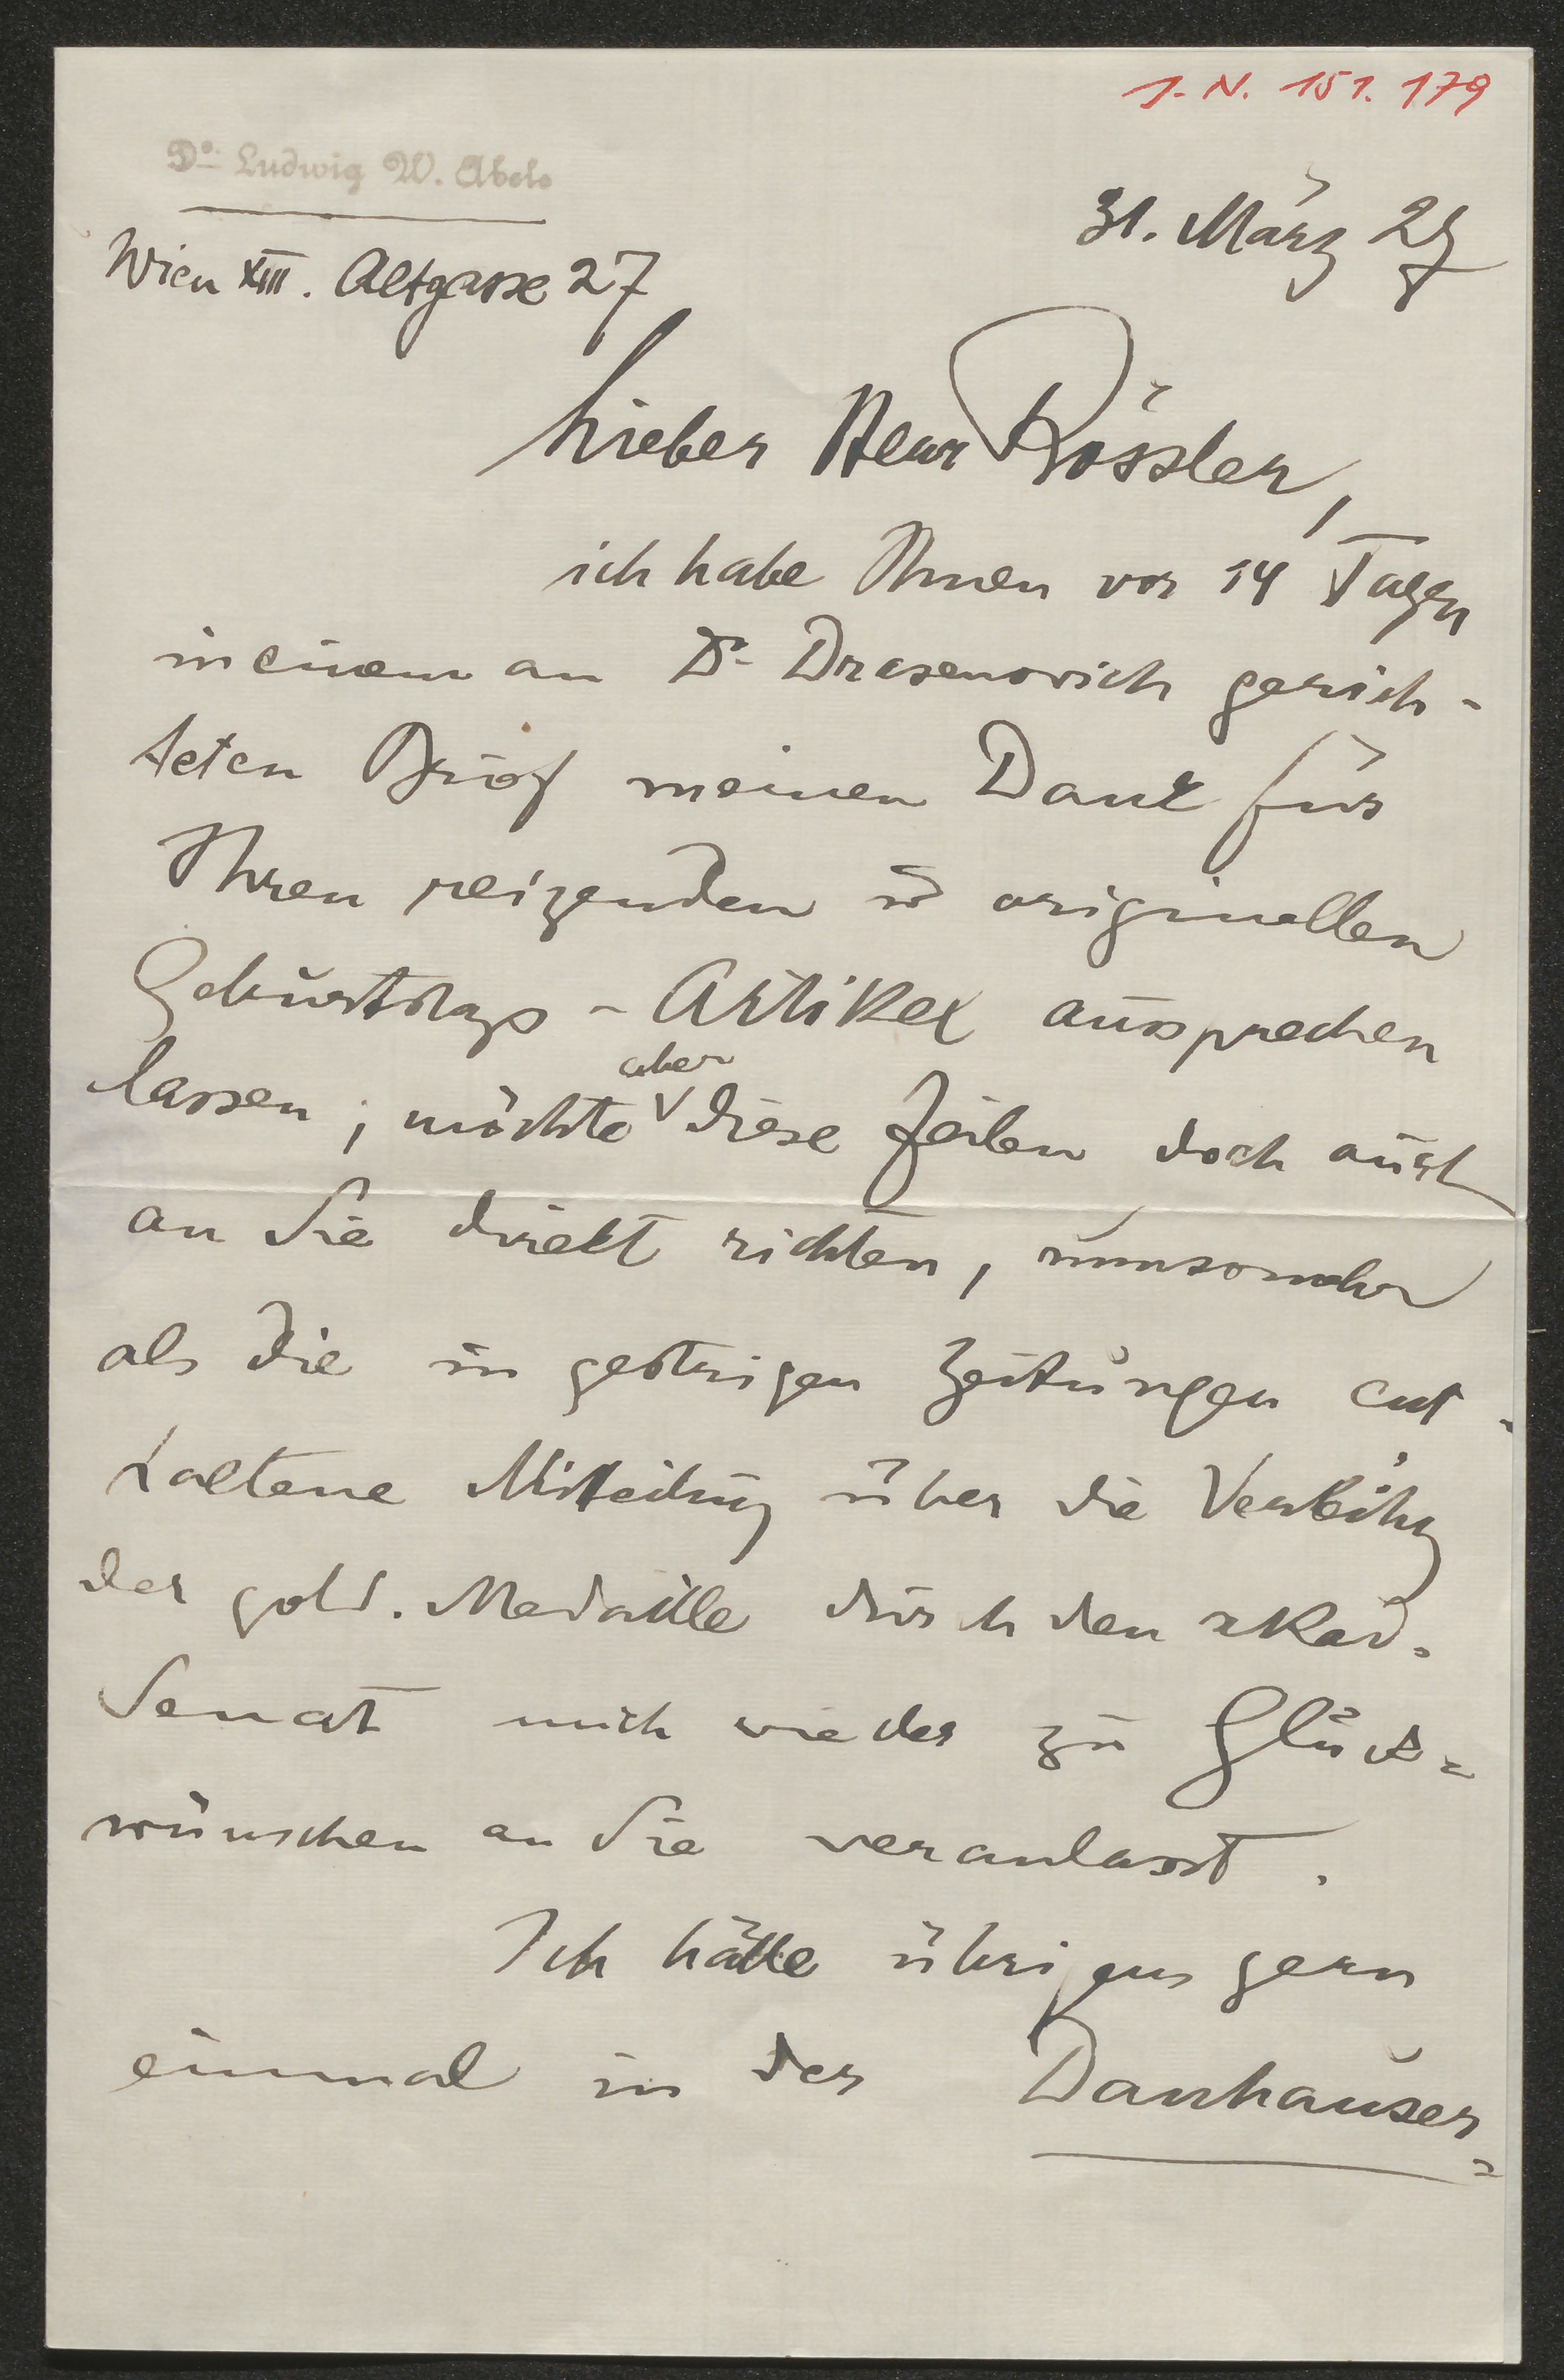 J. N. 151.179
Dr. Ludwig W. Abels
31. März 27
Wien XIII. Altgasse 27
Lieber Herr Rössler,
ich habe Ihnen vor 14 Tagen
in einem an Dr. Drasenovich gerich-
teten Brief meinen Dank für
Ihren reizenden u originellen
Geburtstags-Artikel aussprechen
lassen; möchte aber diese Zeilen doch auch
an Sie direkt richten, umsomehr
als die in gestrigen Zeitungen ent-
haltene Mitteilung über die Verleihg
der gold. Medaille durch den akad.
Senat mich wieder zu Glück=
wünschen an Sie veranlasst.
Ich hätte übrigens gern
einmal in der Danhauser=